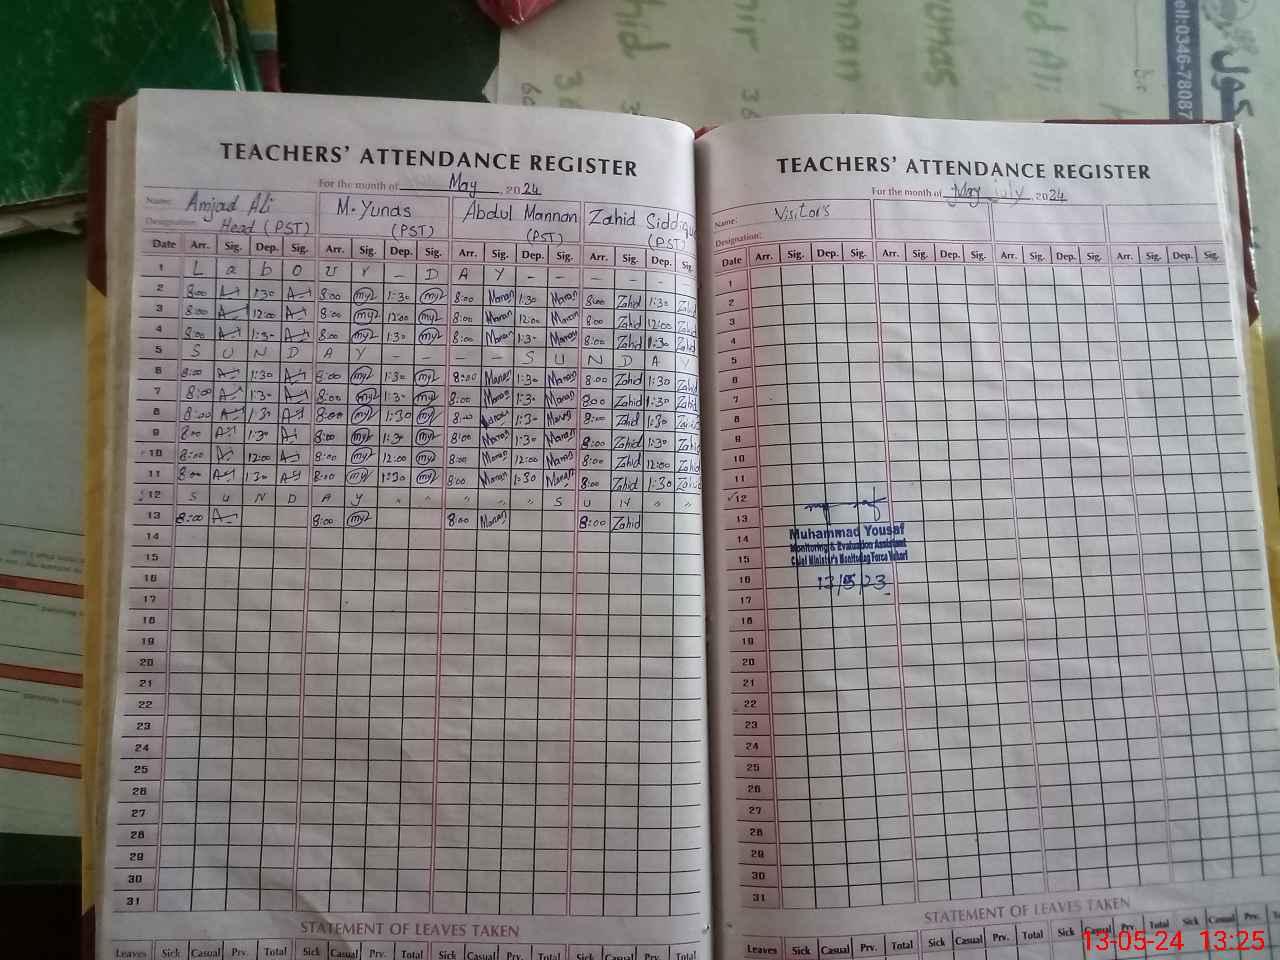 TEACHERS' ATTENDANCE REGISTER
For the month of May, 2024
Name: Amjad Ali M. Yunas Abdul Mannan Zahid Siddiqu
Designation: Head (PST) (PST) (PST) (PST)
Date Arr. Sig. Dep. Sig. Arr. Sig. Dep. Sig. Arr. Sig. Dep. Sig. Arr. Sig. Dep. Sig.
1 L a b o u r - D A Y - - - - -
2 8:00 1:30 8:00 my 1:30 my 8:00 Manan 1:30 Manan 8:00 Zahid 1:30 Zahid
3 8:00 12:00 8:00 my 12:00 my 8:00 Manan 12:00 Manan 8:00 Zahid 12:00 Zahid
4 8:00 1:30 8:00 my 1:30 my 8:00 Manan 1:30 Manan 8:00 Zahid 1:30 Zahid
5 S U N D A Y - - - - S U N D A Y
6 8:00 1:30 8:00 my 1:30 my 8:00 Manan 1:30 Manan 8:00 Zahid 1:30 Zahid
7 8:00 1:30 8:00 my 1:30 my 8:00 Manan 1:30 Manan 8:00 Zahid 1:30 Zahid
8 8:00 1:30 8:00 my 1:30 my 8:00 Manan 1:30 Manan 8:00 Zahid 1:30 Zahid
9 8:00 1:30 8:00 my 1:30 my 8:00 Manan 1:30 Manan 8:00 Zahid 1:30 Zahid
10 8:00 12:00 8:00 my 12:00 my 8:00 Manan 12:00 Manan 8:00 Zahid 12:00 Zahid
11 8:00 1:30 8:00 my 1:30 my 8:00 Manan 1:30 Manan 8:00 Zahid 1:30 Zahid
12 S U N D A Y " " " " " S U N " "
13 8:00 8:00 my 8:00 Manan 8:00 Zahid
14
15
16
17
18
19
20
21
22
23
24
25
26
27
28
29
30
31
STATEMENT OF LEAVES TAKEN
Leaves Sick Casual Prv. Total Sick Casual Prv. Total Sick Casual Prv. Total Sick Casual Prv. Total
TEACHERS' ATTENDANCE REGISTER
For the month of May july, 2024
Name: Visitors
Designation:
Date Arr. Sig. Dep. Sig. Arr. Sig. Dep. Sig. Arr. Sig. Dep. Sig. Arr. Sig. Dep. Sig.
1
2
3
4
5
6
7
8
9
10
11
12
13
14
15
16
17
18
19
20
21
22
23
24
25
26
27
28
29
30
31
Muhammad Yousaf
Monitoring & Evaluation Assistant
Chief Minister's Monitoring Force Vehari
13/5/23
STATEMENT OF LEAVES TAKEN
Leaves Sick Casual Prv. Total Sick Casual Prv. Total Sick Casual Prv. Total Sick Casual Prv. Total
ell:0346-78087
13-05-24 13:25